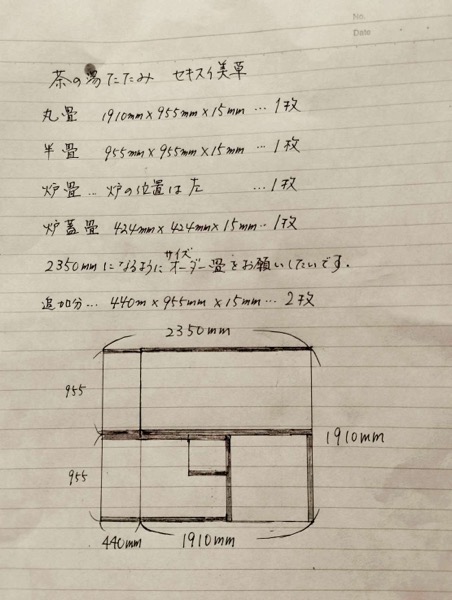 No.
Date
茶の湯たたみ セキスイ美草
丸畳 1910mm×955mm×15mm…1枚
半畳 955mm×955mm×15mm…1枚
炉畳…炉の位置は左 …1枚
炉蓋畳 424mm×424mm×15mm…1枚
サイズ
2350mmになるようにオーダー畳をお願いしたいです。
追加分…440m×955mm×15mm…2枚
2350mm
955
1910mm
955
440mm
1910mm